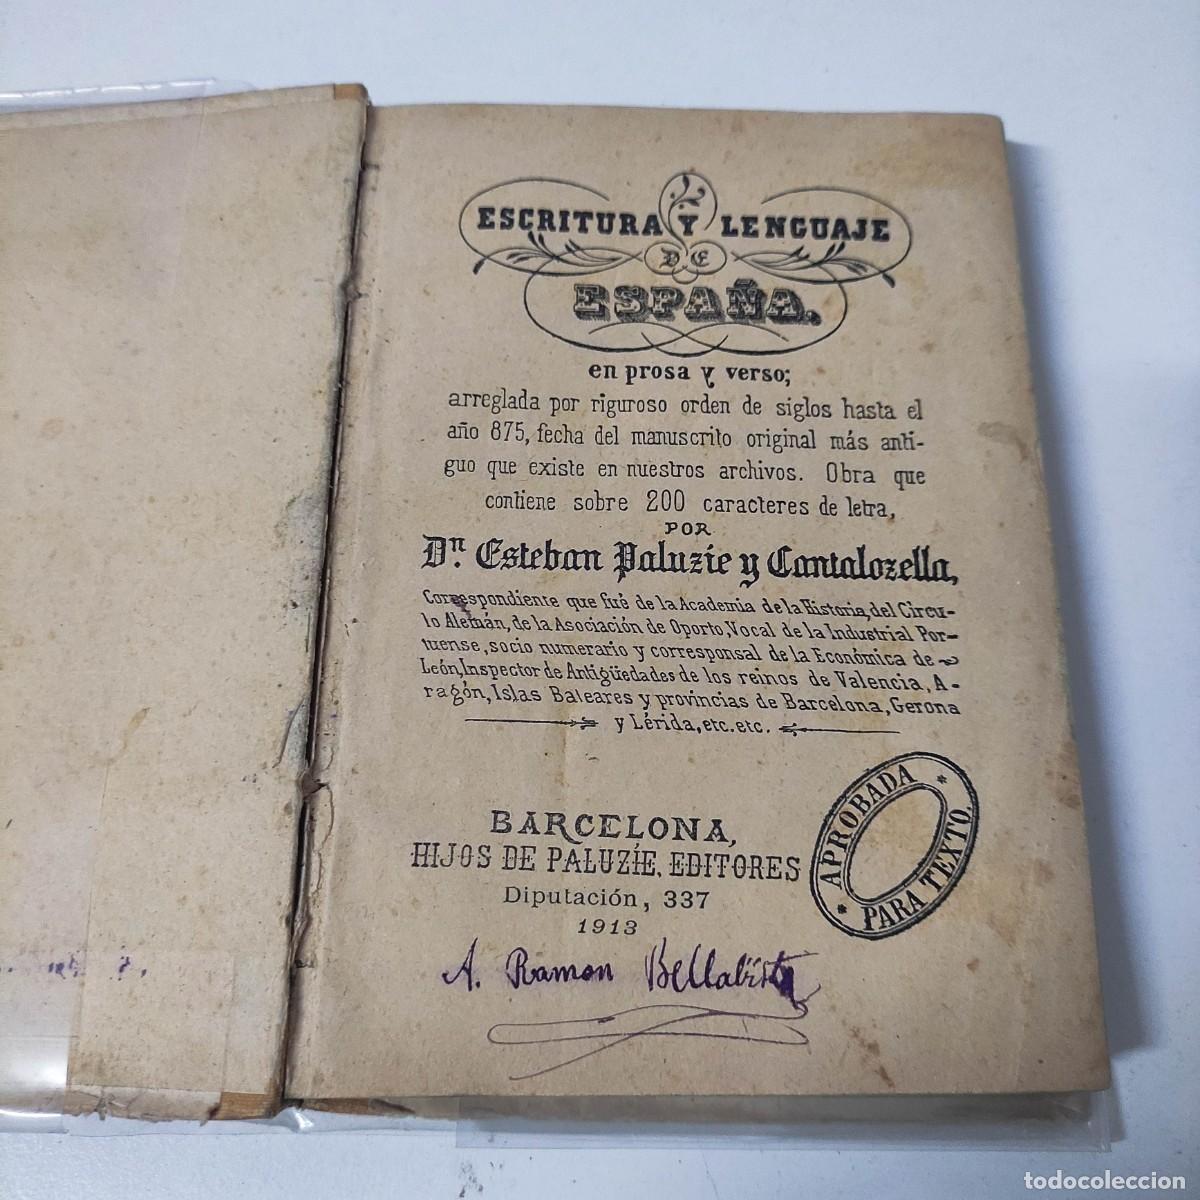 ESCRITURA Y LENGUAJE
DE
ESPAÑA.
en prosa y verso;
arreglada por riguroso orden de siglos hasta el
año 875, fecha del manuscrito original más anti-
guo que existe en nuestros archivos. Obra que
contiene sobre 200 caracteres de letra,
POR
Dn. Esteban Paluzie y Cantalozella,
Correspondiente que fué de la Academia de la Historia, del Círcu-
lo Alemán, de la Asociación de Oporto, Vocal de la Industrial Por-
tuense, socio numerario y corresponsal de la Económica de
León, Inspector de Antigüedades de los reinos de Valencia, A-
ragón, Islas Baleares y provincias de Barcelona, Gerona
y Lérida, etc. etc.
APROBADA
PARA TEXTO.
BARCELONA,
HIJOS DE PALUZÍE, EDITORES
Diputación, 337
1913
A. Ramon Bellabista
todocoleccion